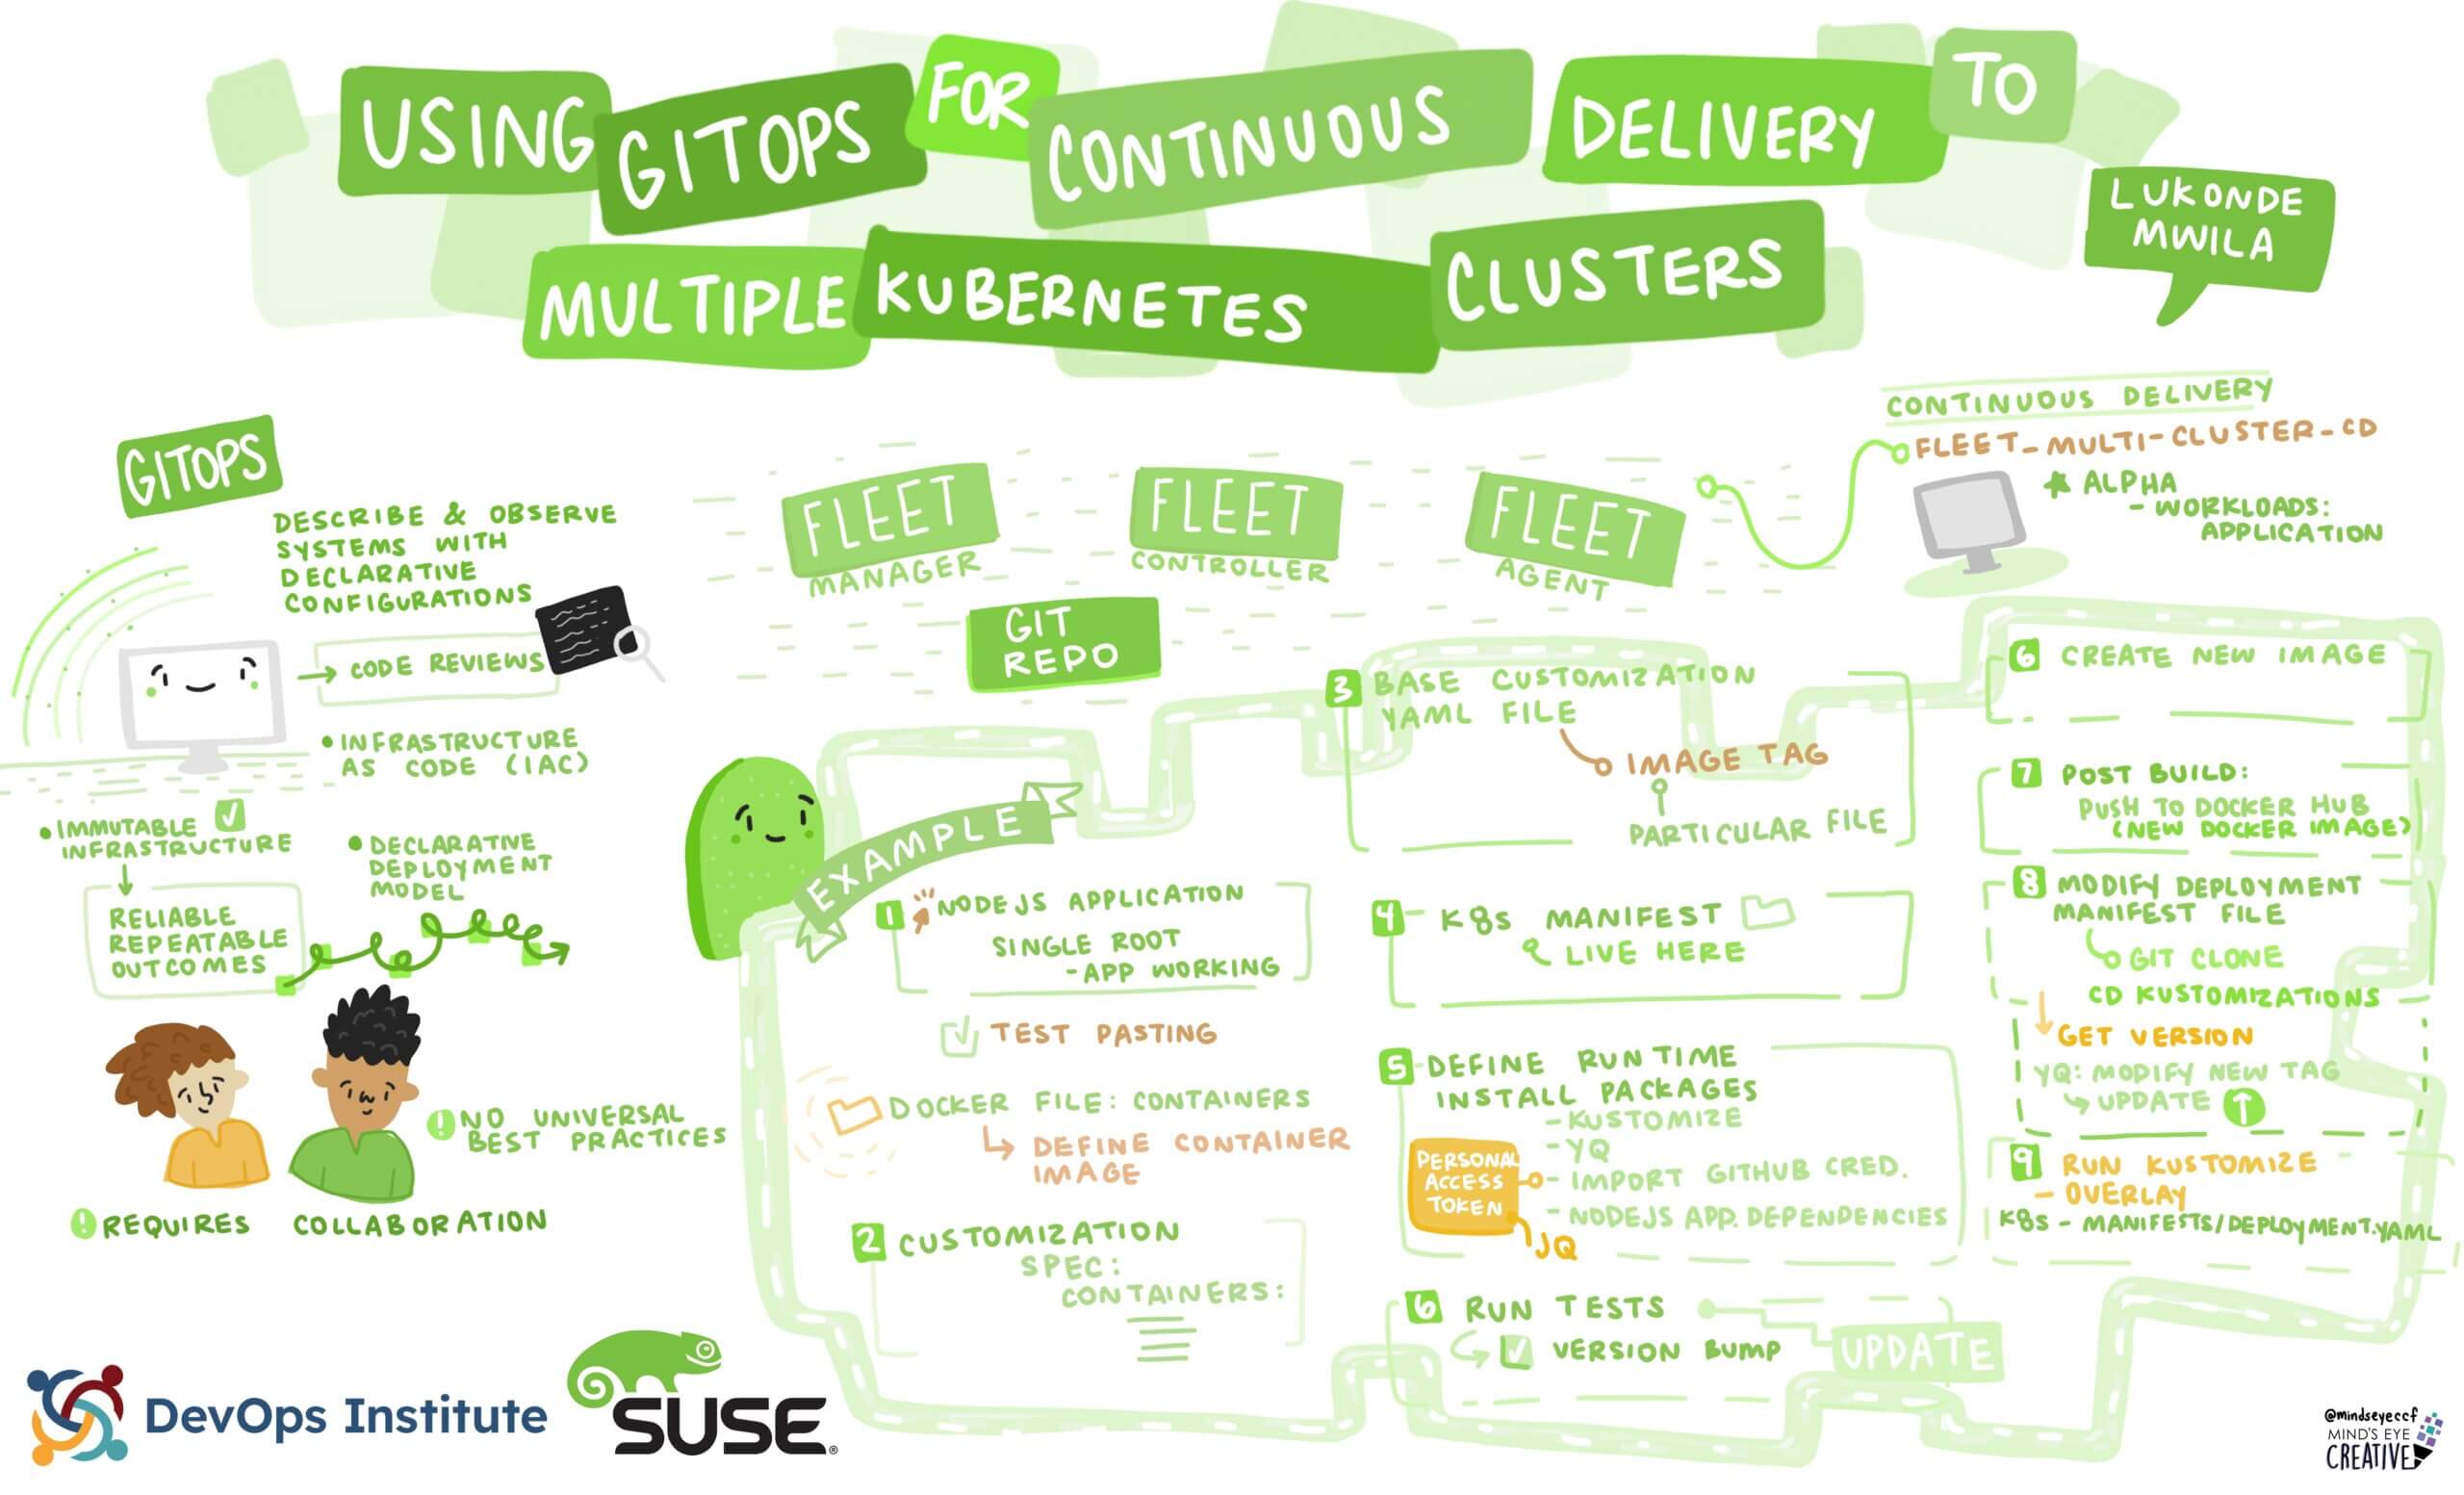 USING GITOPS FOR CONTINUOUS DELIVERY TO
MULTIPLE KUBERNETES CLUSTERS
LUKONDE
MWILA
GITOPS
DESCRIBE & OBSERVE
SYSTEMS WITH
DECLARATIVE
CONFIGURATIONS
→ CODE REVIEWS
• INFRASTRUCTURE
AS CODE (IAC)
• IMMUTABLE
INFRASTRUCTURE
RELIABLE
REPEATABLE
OUTCOMES
• DECLARATIVE
DEPLOYMENT
MODEL
! NO UNIVERSAL
BEST PRACTICES
! REQUIRES COLLABORATION
FLEET
MANAGER
FLEET
CONTROLLER
FLEET
AGENT
GIT
REPO
CONTINUOUS DELIVERY
FLEET_MULTI-CLUSTER_CD
★ ALPHA
- WORKLOADS:
APPLICATION
EXAMPLE
1 NODEJS APPLICATION
SINGLE ROOT
- APP WORKING
TEST PASTING
DOCKER FILE: CONTAINERS
↳ DEFINE CONTAINER
IMAGE
2 CUSTOMIZATION
SPEC:
CONTAINERS:
3 BASE CUSTOMIZATION
YAML FILE
IMAGE TAG
PARTICULAR FILE
4 - K8s MANIFEST
LIVE HERE
5 - DEFINE RUNTIME
INSTALL PACKAGES
- KUSTOMIZE
- YQ
- IMPORT GITHUB CRED.
- NODEJS APP. DEPENDENCIES
PERSONAL
ACCESS
TOKEN
JQ
6 RUN TESTS
VERSION BUMP
UPDATE
6 CREATE NEW IMAGE
7 POST BUILD:
PUSH TO DOCKER HUB
(NEW DOCKER IMAGE)
8 MODIFY DEPLOYMENT
MANIFEST FILE
GIT CLONE
CD KUSTOMIZATIONS
GET VERSION
YQ: MODIFY NEW TAG
↳ UPDATE ↑
9 RUN KUSTOMIZE
- OVERLAY
K8s - MANIFESTS/DEPLOYMENT.YAML
DevOps Institute
SUSE®
@mindseyeccf
MIND'S EYE
CREATIVE